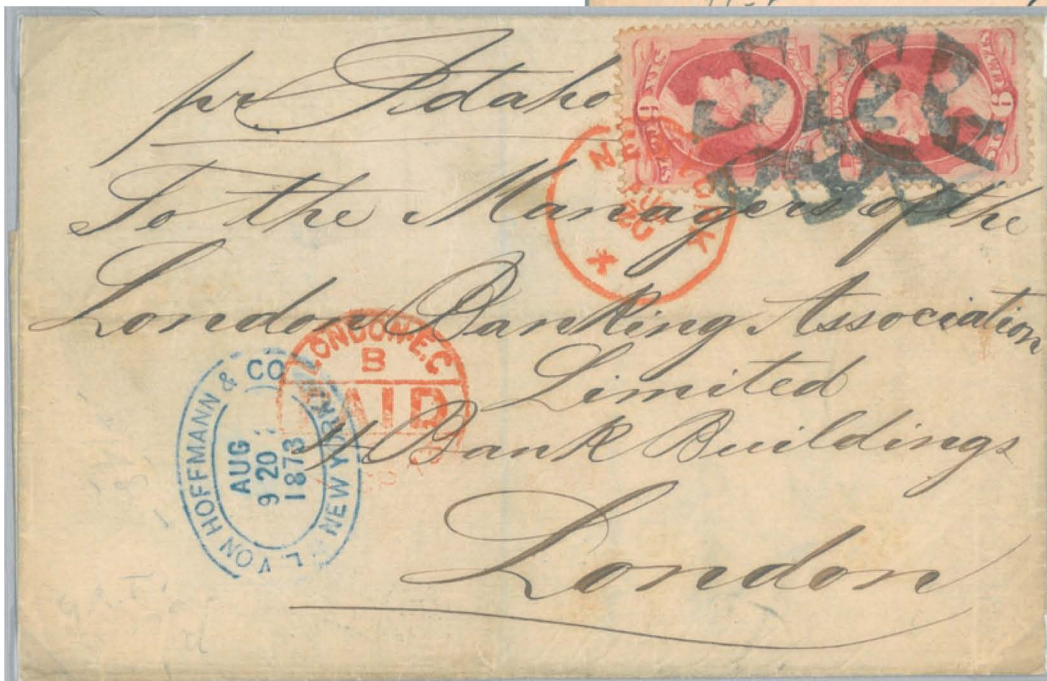 pr Idaho
To the Managers of the
London Banking Association
Limited
4 Bank Buildings
London
NEW YORK
AUG
20
LONDON E.C
B
PAID
L. VON HOFFMANN & CO
NEW YORK
AUG
9 20
1873
6
6